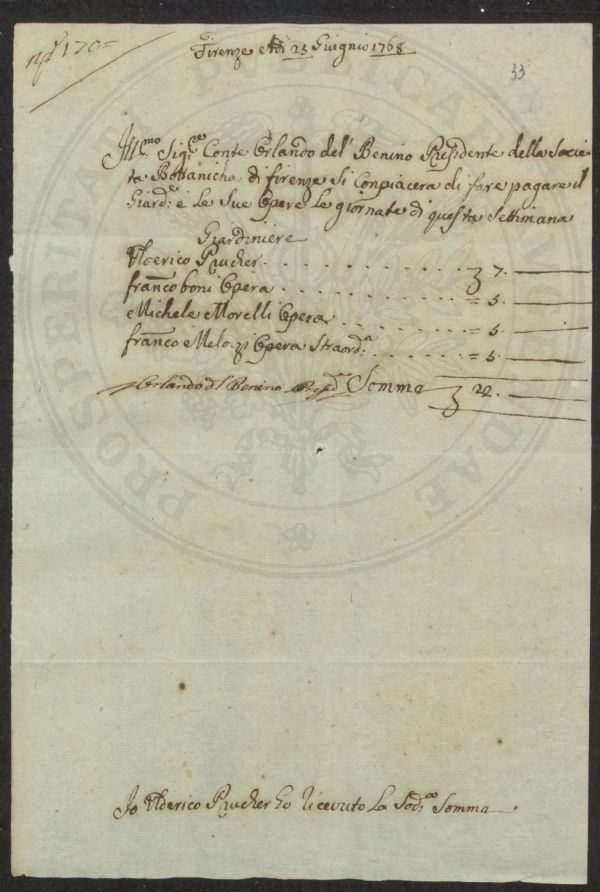 n° 170=
Firenze Adi 25 Giugnio 1768
33
Ill:mo Sig:re Conte Orlando del Benino Presidente della Socie
ta Bottanicha di firenze Si Conpiacera di fare pagare il
Giard:e e Le Sue Opere Le giornate di questa Settimana
Giardiniere
Ulderico Prucher . . . . . . . . . . . . 7.
franco boni Opera . . . . . . . . . . . = 5.
Michele Morelli Opera . . . . . . . = 5.
franco Melozzi Opera Straord:a . . . . . = 5.
Orlando del Benino Presd:e Somma 22.
Io Ulderico Prucher Ho Ricevuto La Sod:a Somma
PROSPERITATI PUBLICAE AUGENDAE